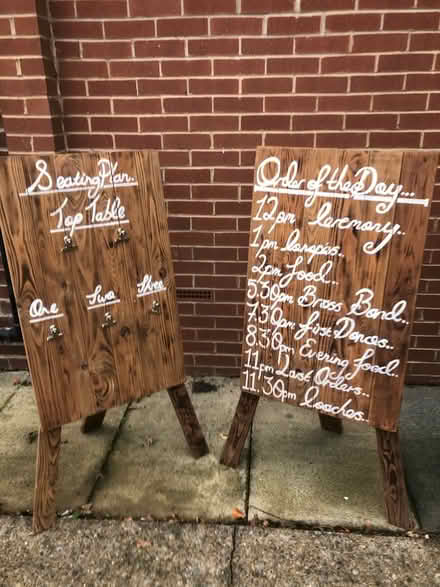 Seating Plan.
Top Table
One Two Three
Order of the Day...
12pm Ceremony..
1pm Canapes..
2pm Food..
5.30pm Brass Band..
7.30pm First Dances..
8.30pm Evening Food..
11pm Last Orders..
11.30pm Coaches..